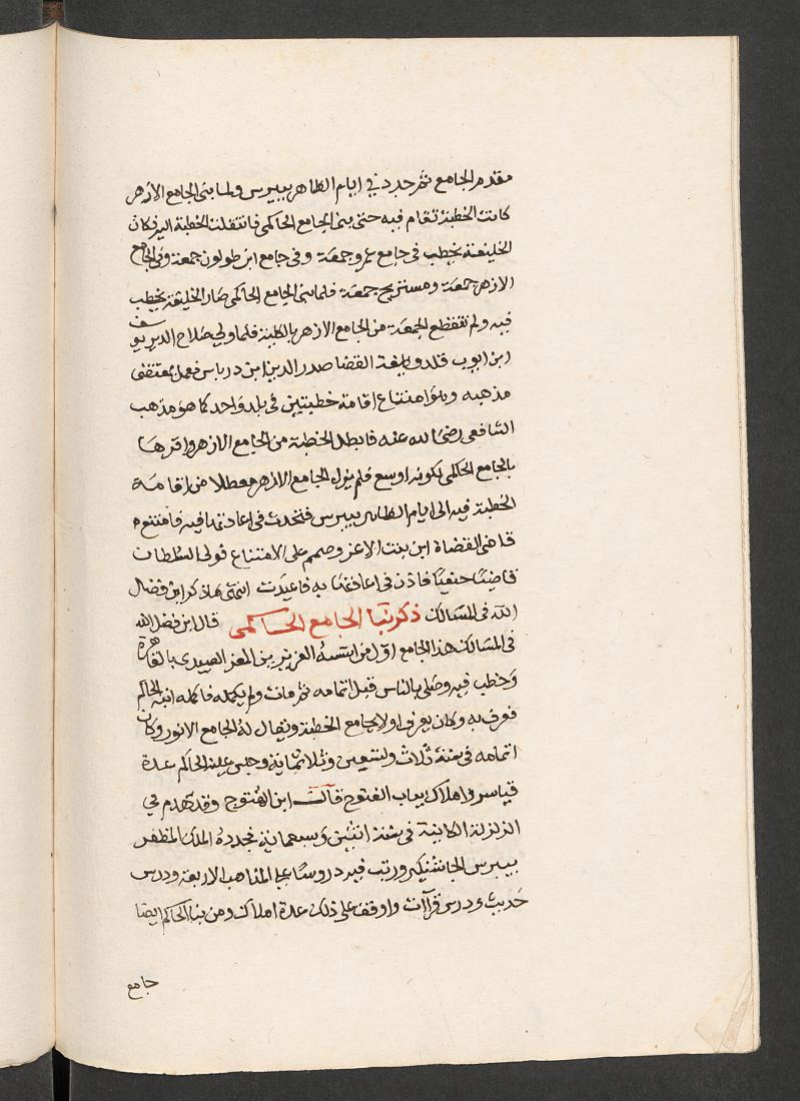 مقدم الجامع ثم جدد في ايام الظاهر بيبرس ولما بنى الجامع الازهر
كانت الخطبة تقام فيه حتى بنى الجامع الحاكمي فانتقلت الخطبة اليه فكان
الخليفة يخطب في جامع عمرو جمعة وفي جامع ابن طولون جمعة وفي الجامع
الازهر جمعة ومستريح جمعة فلما بنى الجامع الحاكمي صار الخليفة يخطب
فيه ولم تنقطع الجمعة من الجامع الازهر بالكلية فلما ولي صلاح الدين يوسف
ابن ايوب قلد وظيفة القضا صدر الدين ابن درباس فعمل بمقتضى
مذهبه وهو امتناع اقامة خطبتين في بلد واحد كما هو مذهب
الشافعي رضي الله عنه فابطل الخطبة من الجامع الازهر واقرها
بالجامع الحاكمي لكونه اوسع فلم يزل الجامع الازهر معطلا من اقامة
الخطبة فيه الى ايام الظاهر بيبرس فتحدث في اعادتها فيه فامتنع
قاضي القضاة ابن بنت الاعز وصمم على الامتناع فولى السلطان
قاضيا حنفيا فاذن في اعادتها به فاعيدت انتهى هاذكر ابن فضل
الله في المسالك ذكر بنا الجامع الحاكمي قال ابن فضل الله
في المسالك هذا الجامع اول من اسسه العزيز بن المعز العبيدي بالقاهرة
وخطب فيه وصلى بالناس قبل اتمامه ثم مات ولم يكمله فاكمله ابنه الحاكم
فعرف به وكان يعرف اولا بجامع الخطبة ويقال له الجامع الانور وكان
اتمامه في سنة ثلاث وتسعين وثلاثماية وحبس عليه الحاكم عدة
قياسر واملاك بباب الفتوح قالت ابن المتوج وقد تهدم في
الزلزلة الكاينة في سنة اثنتين وسبعماية فجدده الملك المظفر
بيبرس الجاشنكير ورتب فيه دروسا على المذاهب الاربعة ودرس
حديث ودرس قراات واوقف على ذلك عدة املاك ومن بنا الحاكم ايضا
جامع